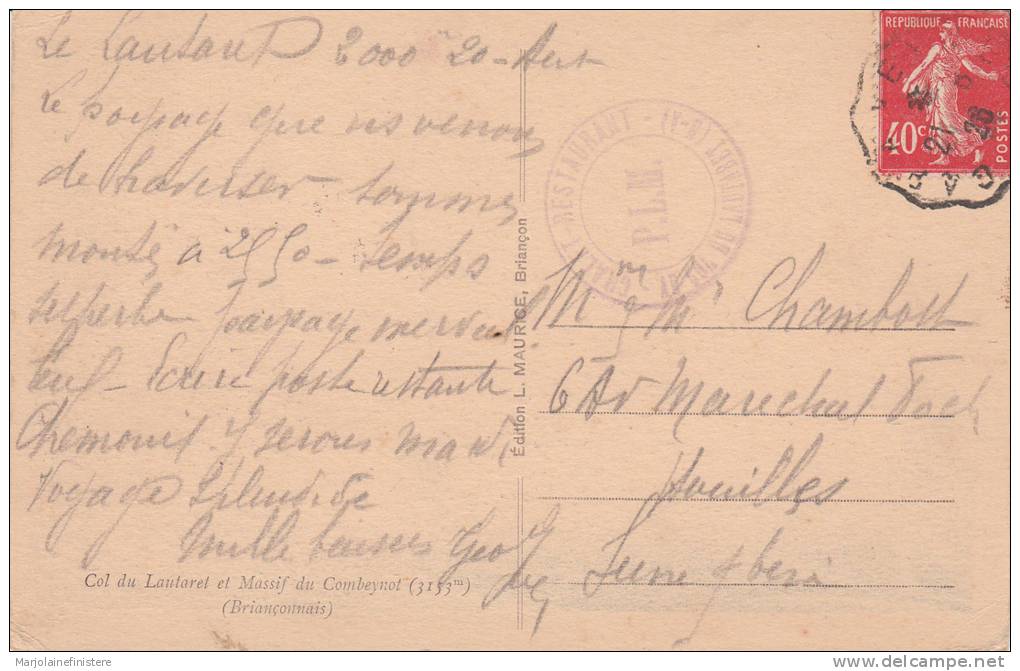 Le Lautaret 2000 20 - Aout
Le paysage que ns venons
de traverser sommes
montés à 2550 - temps
superbe paysage merveil
leux - Ecrire poste restante
Chamonix y serons mardi
Voyage splendide
Mille baisers
Col du Lautaret et Massif du Combeynot (3153m)
(Briançonnais)
Édition L. MAURICE, Briançon
CHALET-RESTAURANT - DU LAUTARET (H-A)
P.L.M.
RÉPUBLIQUE FRANÇAISE
40c
POSTES
21
26
M et Mme Chambost
6 Av Marechal Foch
Houilles
Seine & Oise
Marjolainefinistere
delcampe.net